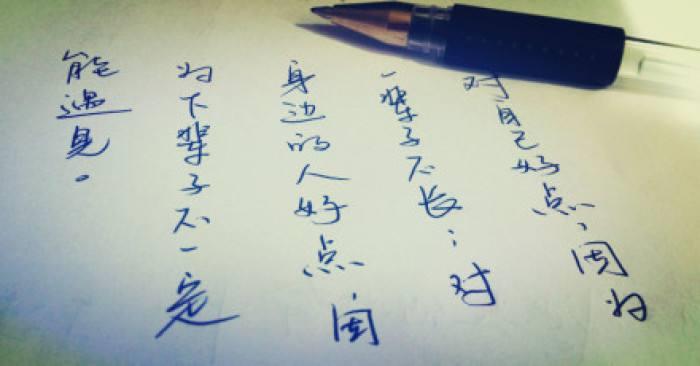 对自己好点，因为
一辈子不长；对
身边的人好点，因
为下辈子不一定
能遇见。